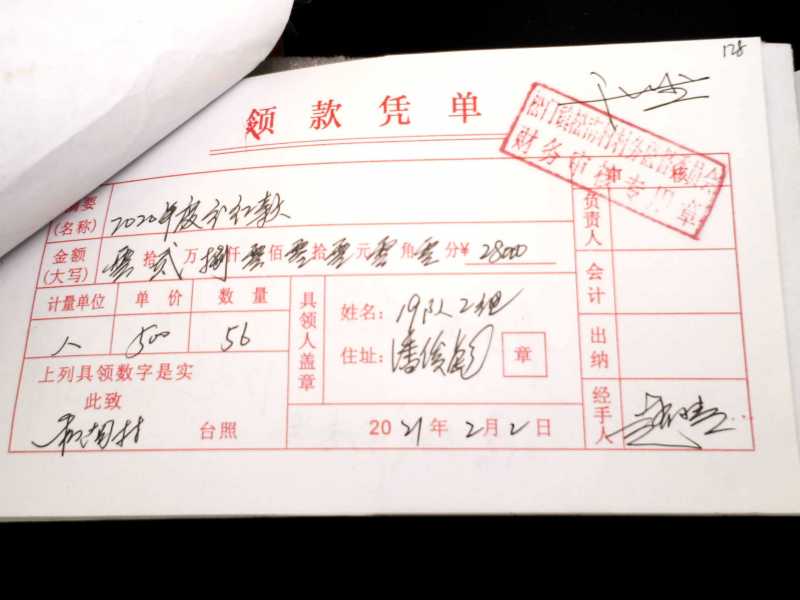 128
领款凭单
松门镇松南村村务监督委员会
财务审核专用章
审核
摘要(名称) 2020年度分红款
金额(大写) 零拾贰万捌仟零佰零拾零元零角零分¥ 28000
计量单位 单价 数量
人 500 56
具领人盖章
姓名: 19队2组
住址: 潘
章
上列具领数字是实
此致
松南村 台照
2021年2月2日
负责人
会计
出纳
经手人